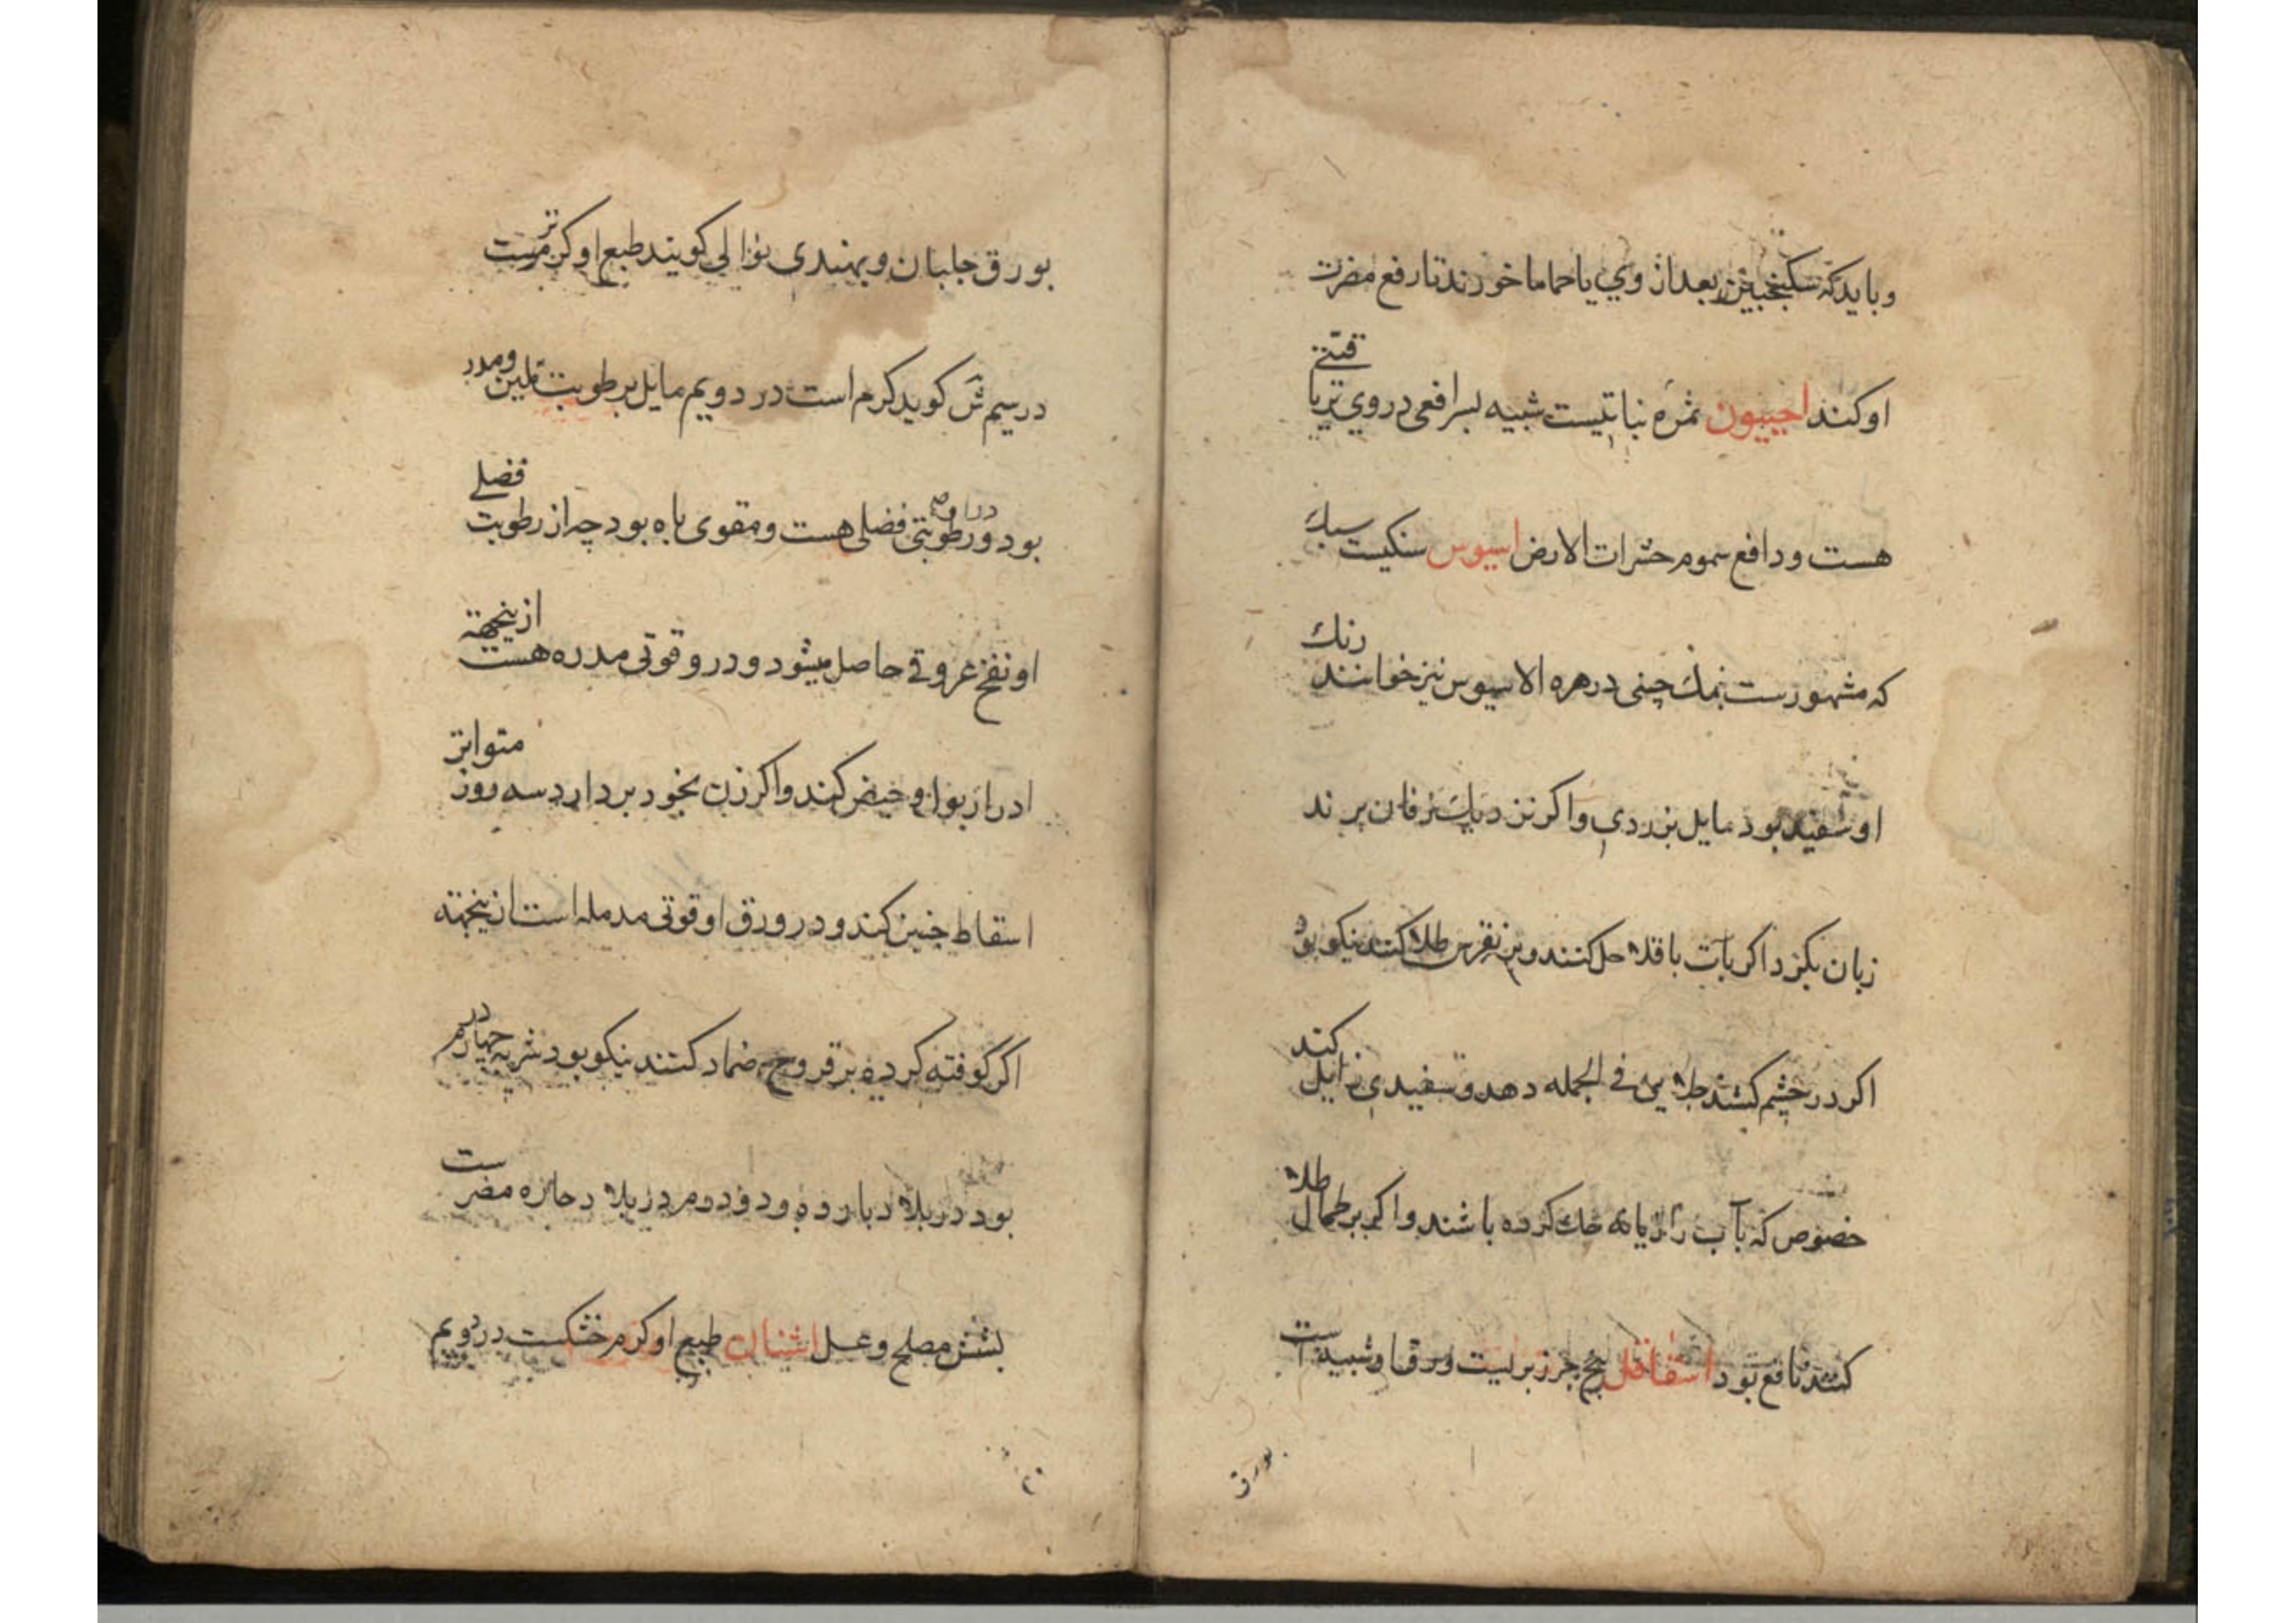 و بایدکه سکنجبین بعد از وي یا حماما خورند تا رفع مضرت
او کند اجیبون ثمره نباتیست شبیه بسر افعی در وي تریا
قیتي
هست و دافع سموم حشرات الارض اسیوس سنکیست سبك
که مشهورست بنمك چینی در هره الاسیوس نیز خوانند رنك
او سفید بود مایل بزردي و اکر نزدیك زفان برند
زبان بکزد اکر بآب باقلا حل کنند و بر نقرس طلا کنند نیکو بود
اکر در چشم کشند جلایي في الجمله دهد و سفیدي زایل کند
خصوص که بآب رازیانه حك کرده باشند و اکر بر طحال طلا
کنند نافع بود اشقاقل بیخ جزر بریست ورق او شبیه است
بورق
بورق جلبان و بهندی بوالي کویند طبع او کرم ترست
در سیم ش کوید کرم است در دویم مایل برطوبت ملین و مدر
بود و در او رطوبتی فضلی هست و مقوی باه بود چه از رطوبت فضلے
او نفخ عروقے حاصل میشود و در و قوتی مدره هست ازینجهة
ادرار بول و حیض کند و اکر زن بخود بردارد سه روز متواتر
اسقاط جنین کند و در ورق او قوتی مدمله است ازینجهة
اکر کوفته کرده بر قروح ضماد کنند نیکو بود شربه چهار درم
بود در بلاد بارده و دو درم در بلاد حاره مضرست
بشش مصلح وعسل اشنان طبع او کرم خشکست در دویم